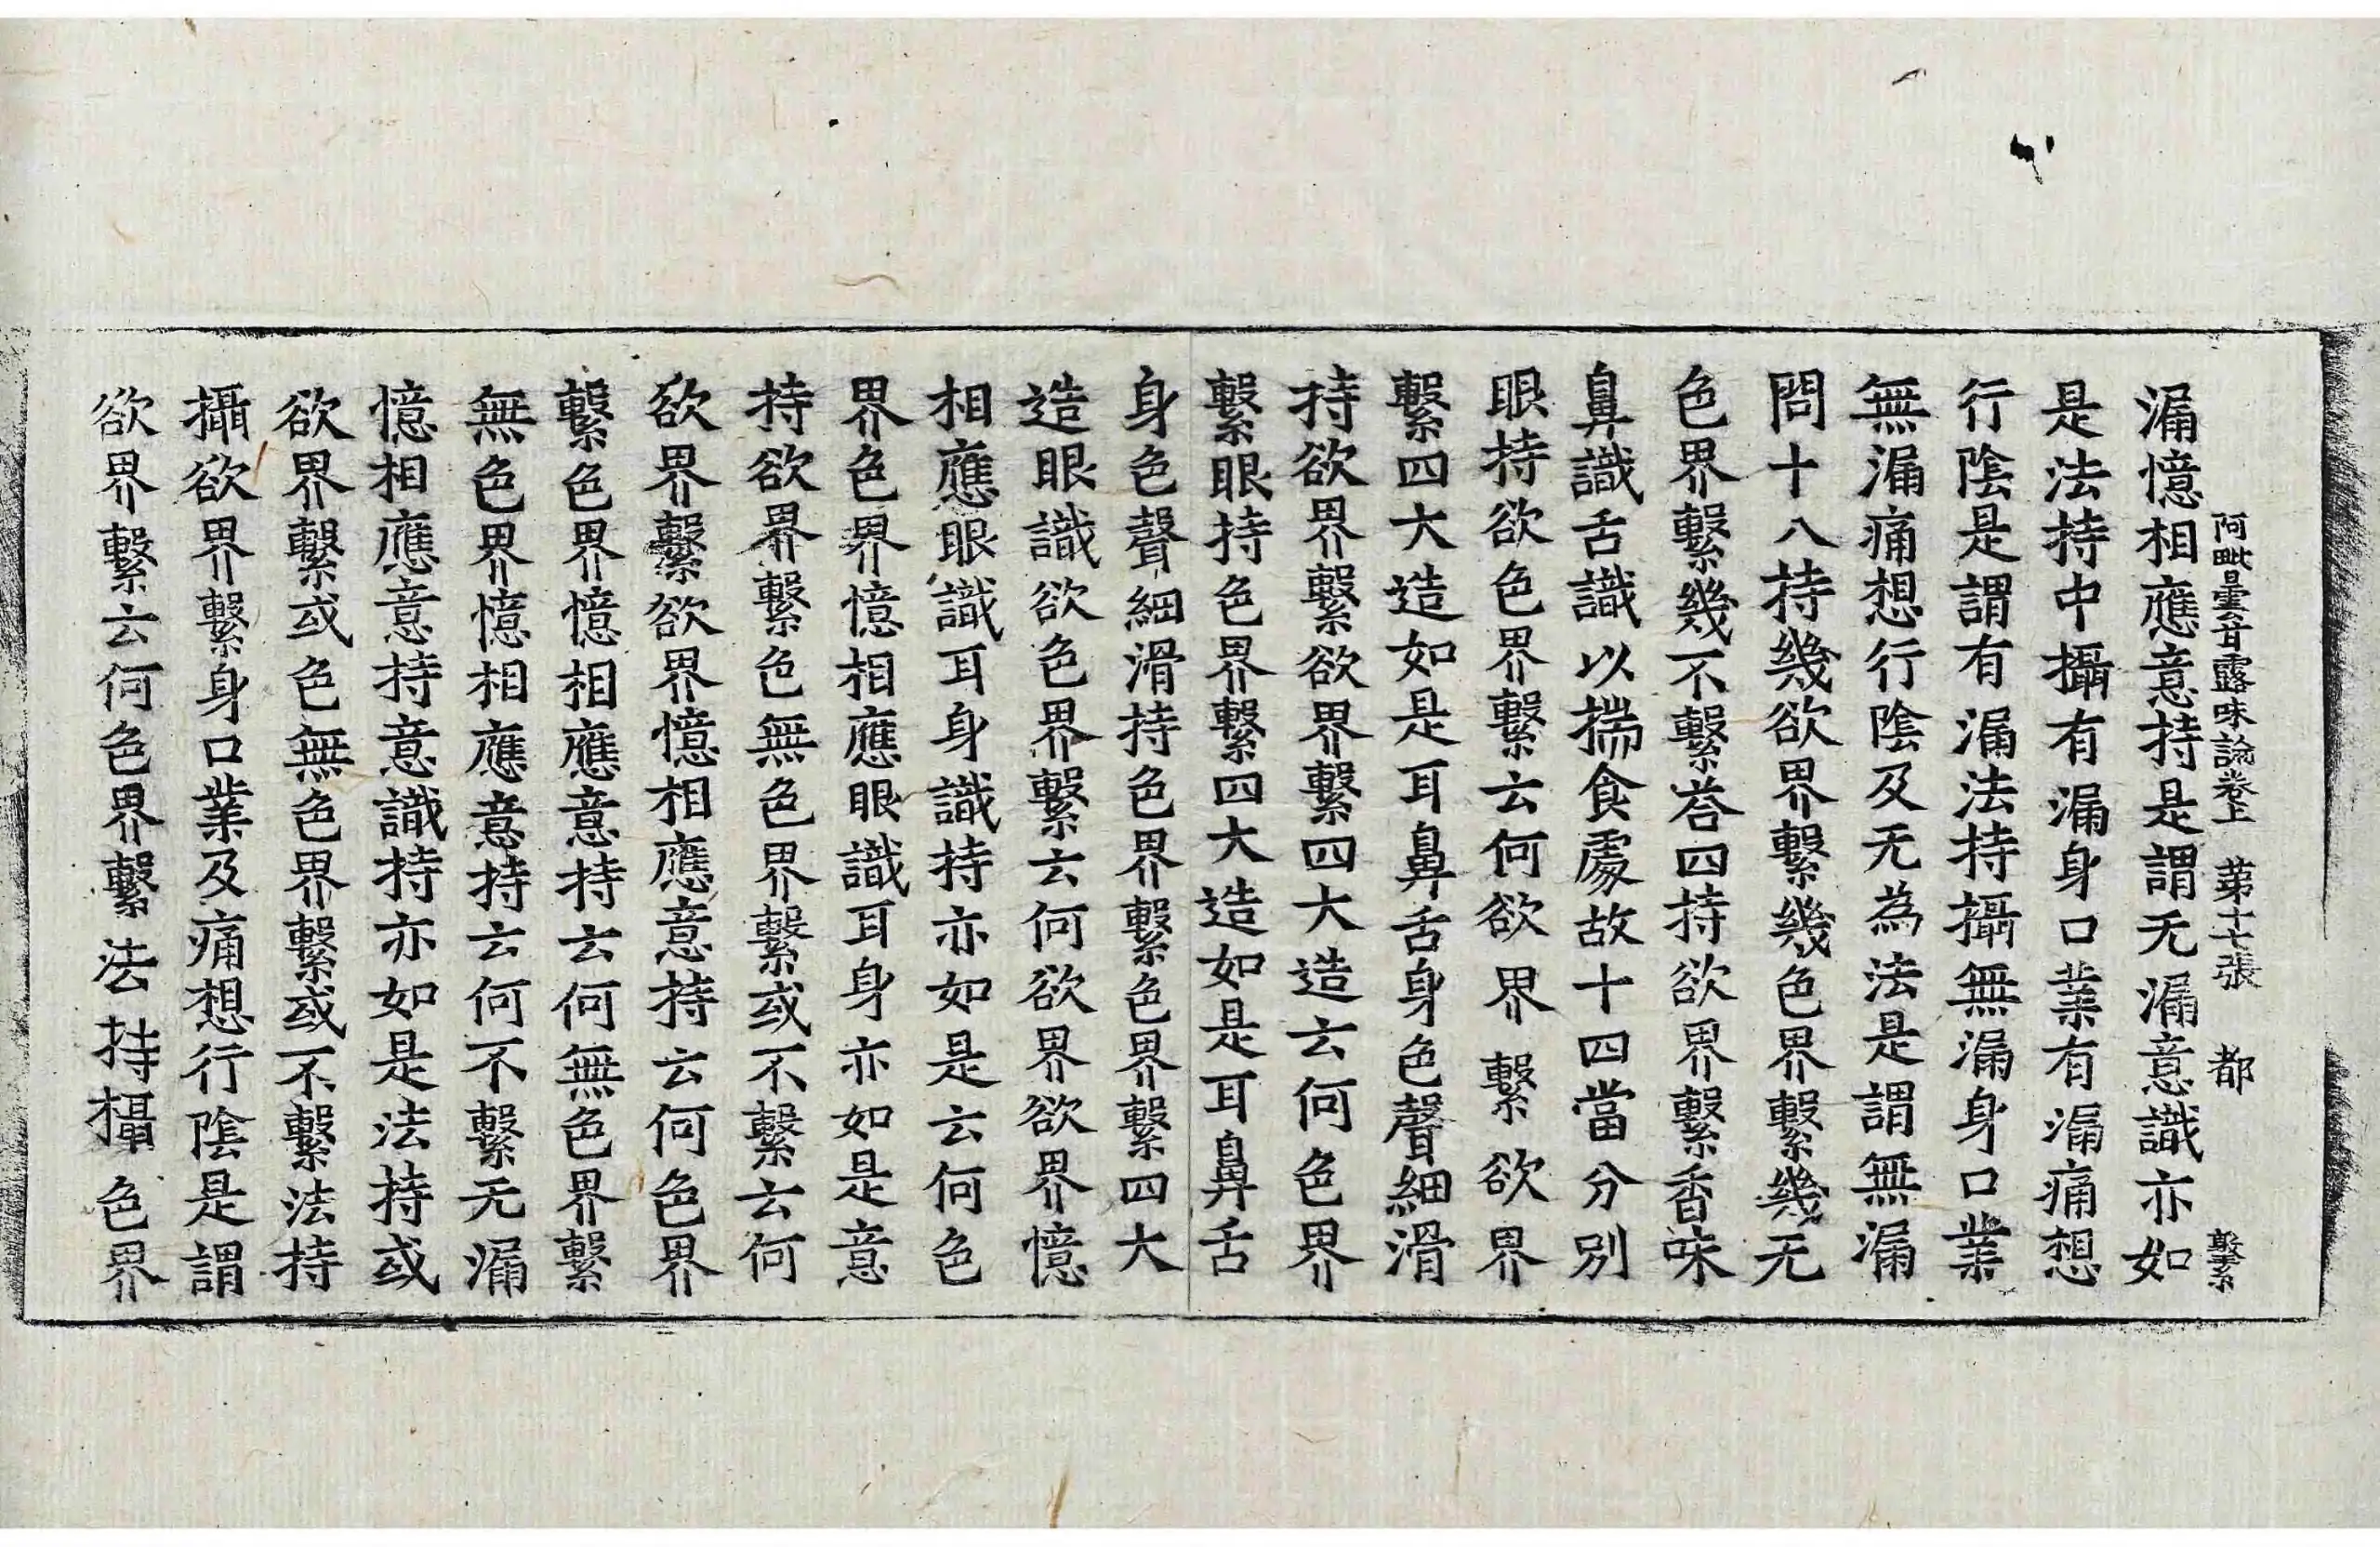 阿毗曇甘露味論卷上　苐十七張　都　繫
漏憶相應意持是謂无漏意識亦如
是法持中攝有漏身口業有漏痛想
行陰是謂有漏法持攝無漏身口業
無漏痛想行陰及无為法是謂無漏
問十八持幾欲界繫幾色界繫幾无
色界繫幾不繫荅四持欲界繫香味
鼻識舌識以揣食處故十四當分別
眼持欲色界繫云何欲界繫欲界
繫四大造如是耳鼻舌身色聲細滑
持欲界繫欲界繫四大造云何色界
繫眼持色界繫四大造如是耳鼻舌
身色聲細滑持色界繫色界繫四大
造眼識欲色界繫云何欲界欲界憶
相應眼識耳身識持亦如是云何色
界色界憶相應眼識耳身亦如是意
持欲界繫色無色界繫或不繫云何
欲界繫欲界憶相應意持云何色界
繫色界憶相應意持云何無色界繫
無色界憶相應意持云何不繫无漏
憶相應意持意識持亦如是法持或
欲界繫或色無色界繫或不繫法持
攝欲界繫身口業及痛想行陰是謂
欲界繫云何色界繫法持攝色界